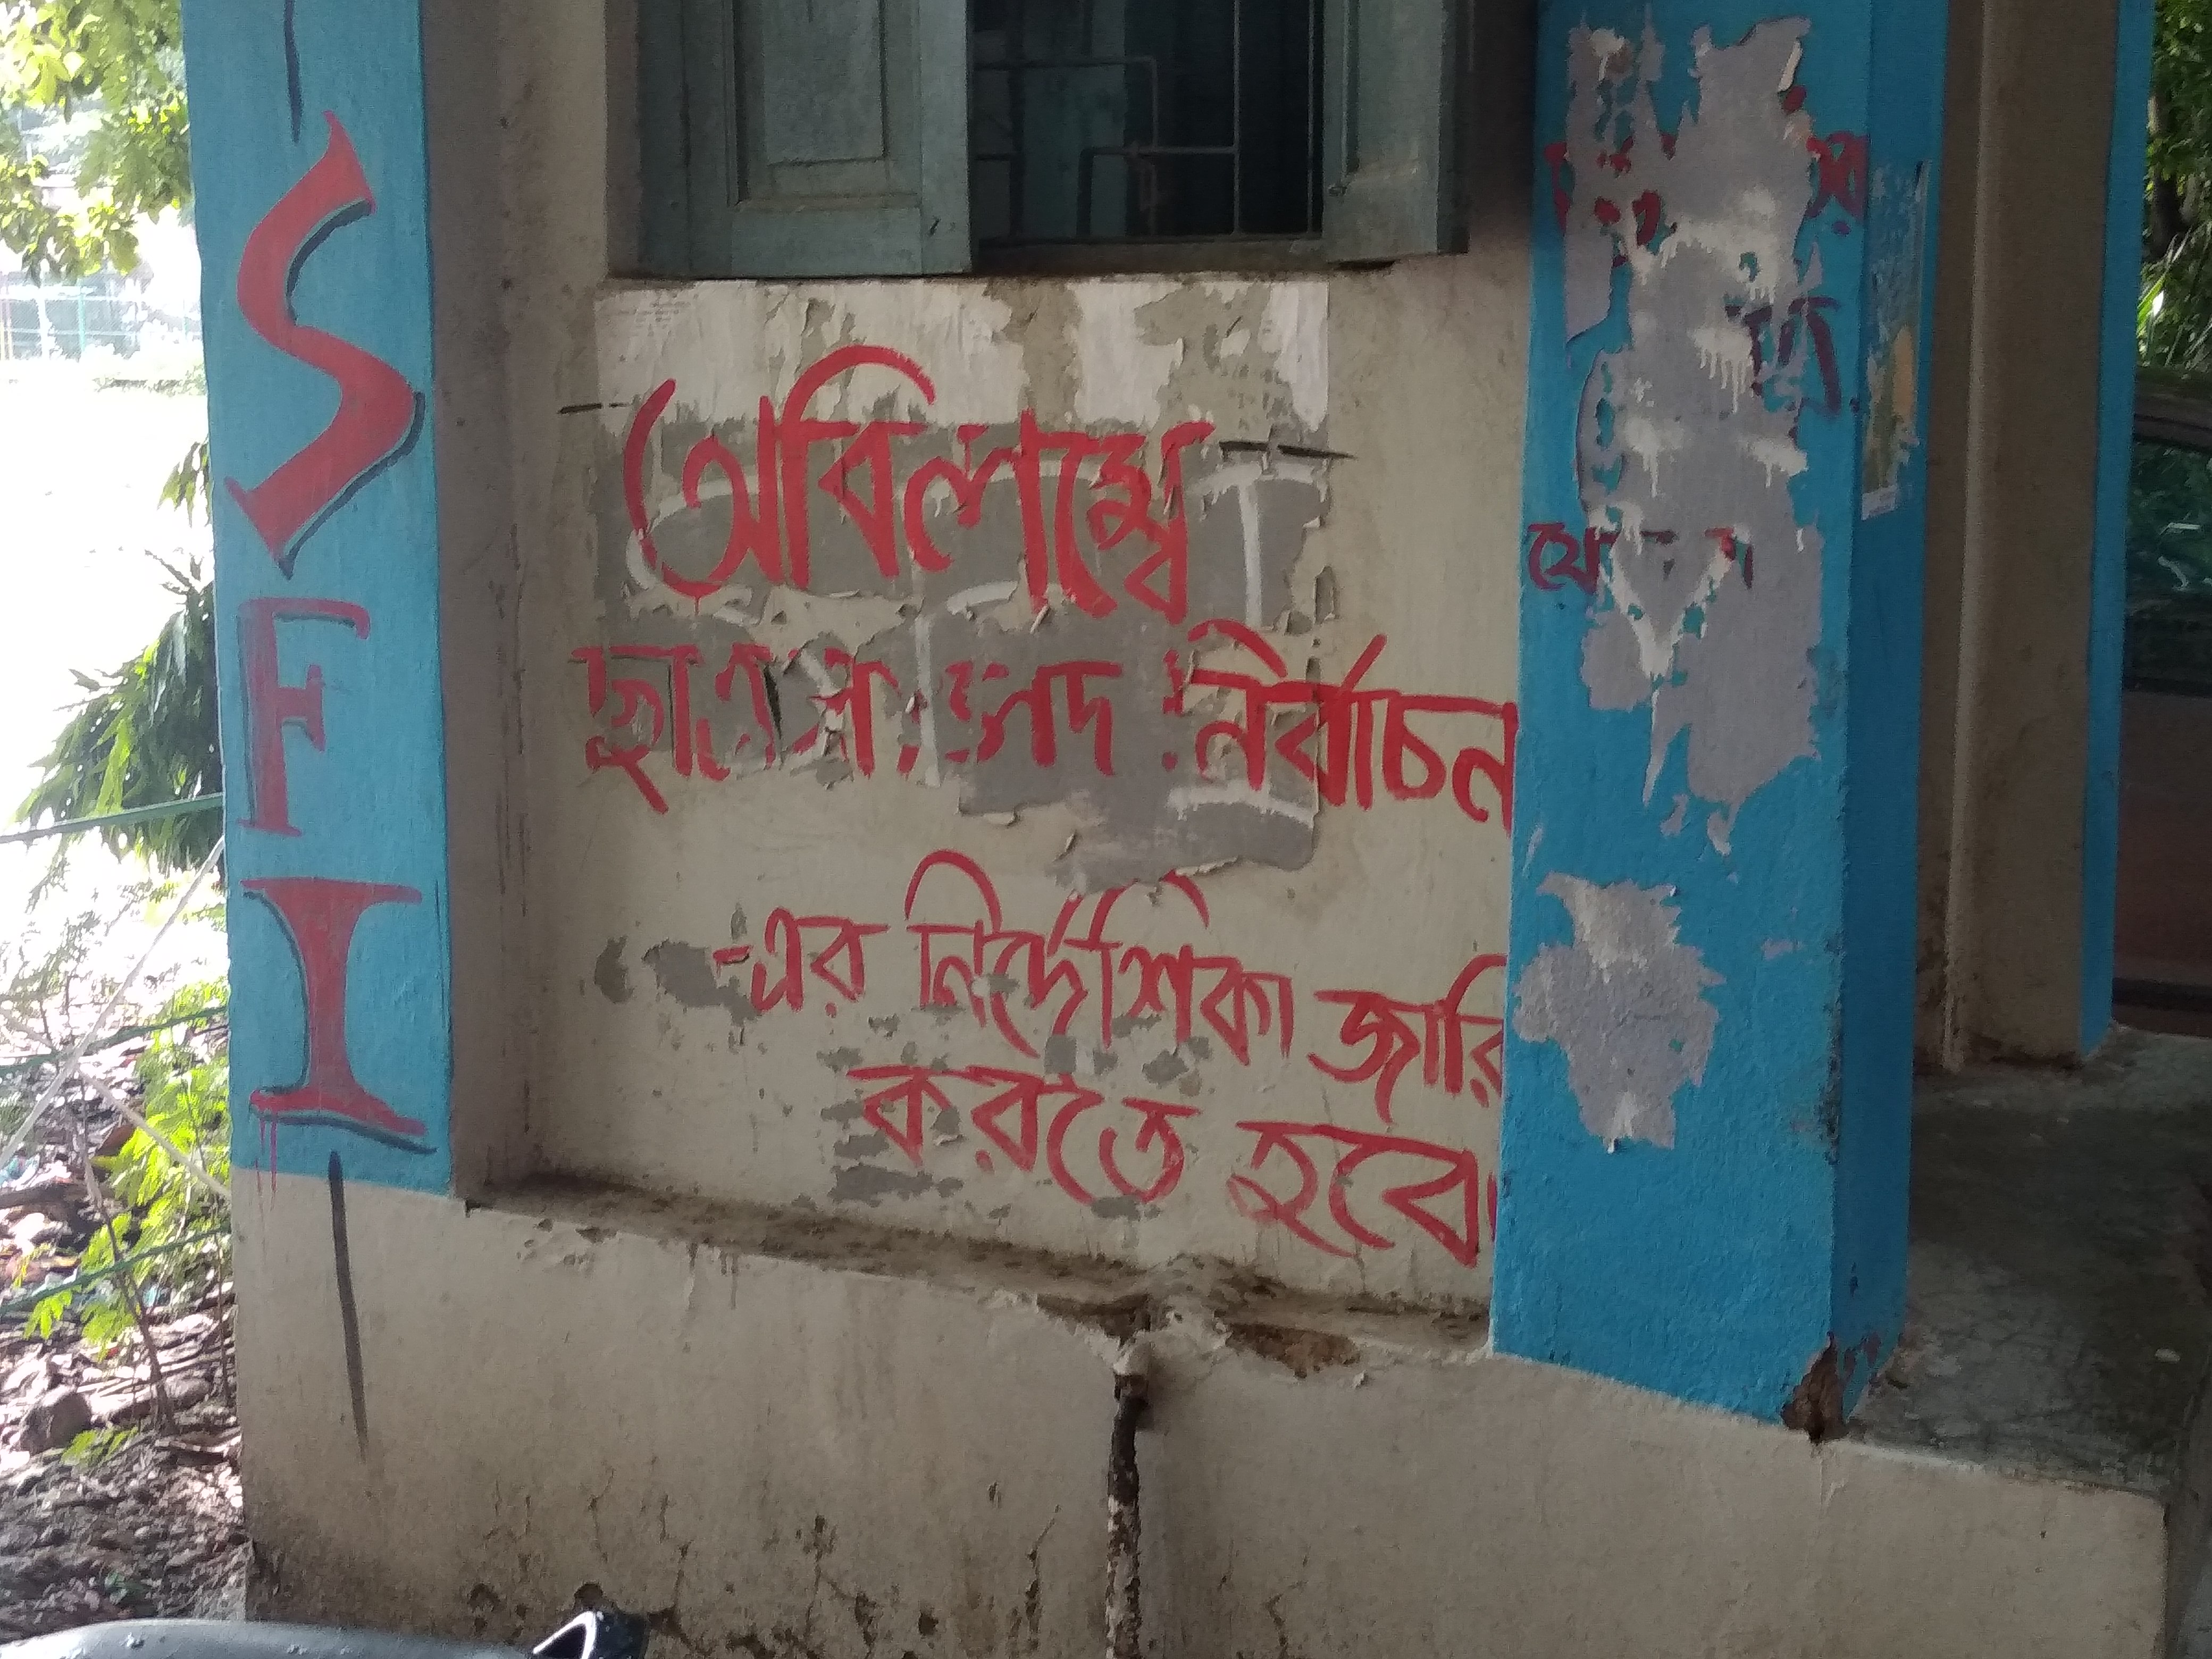 SFI
অবিলম্বে
ছাত্র সংসদ নির্বাচন
-এর নির্দেশিকা জারি
করতে হবে।